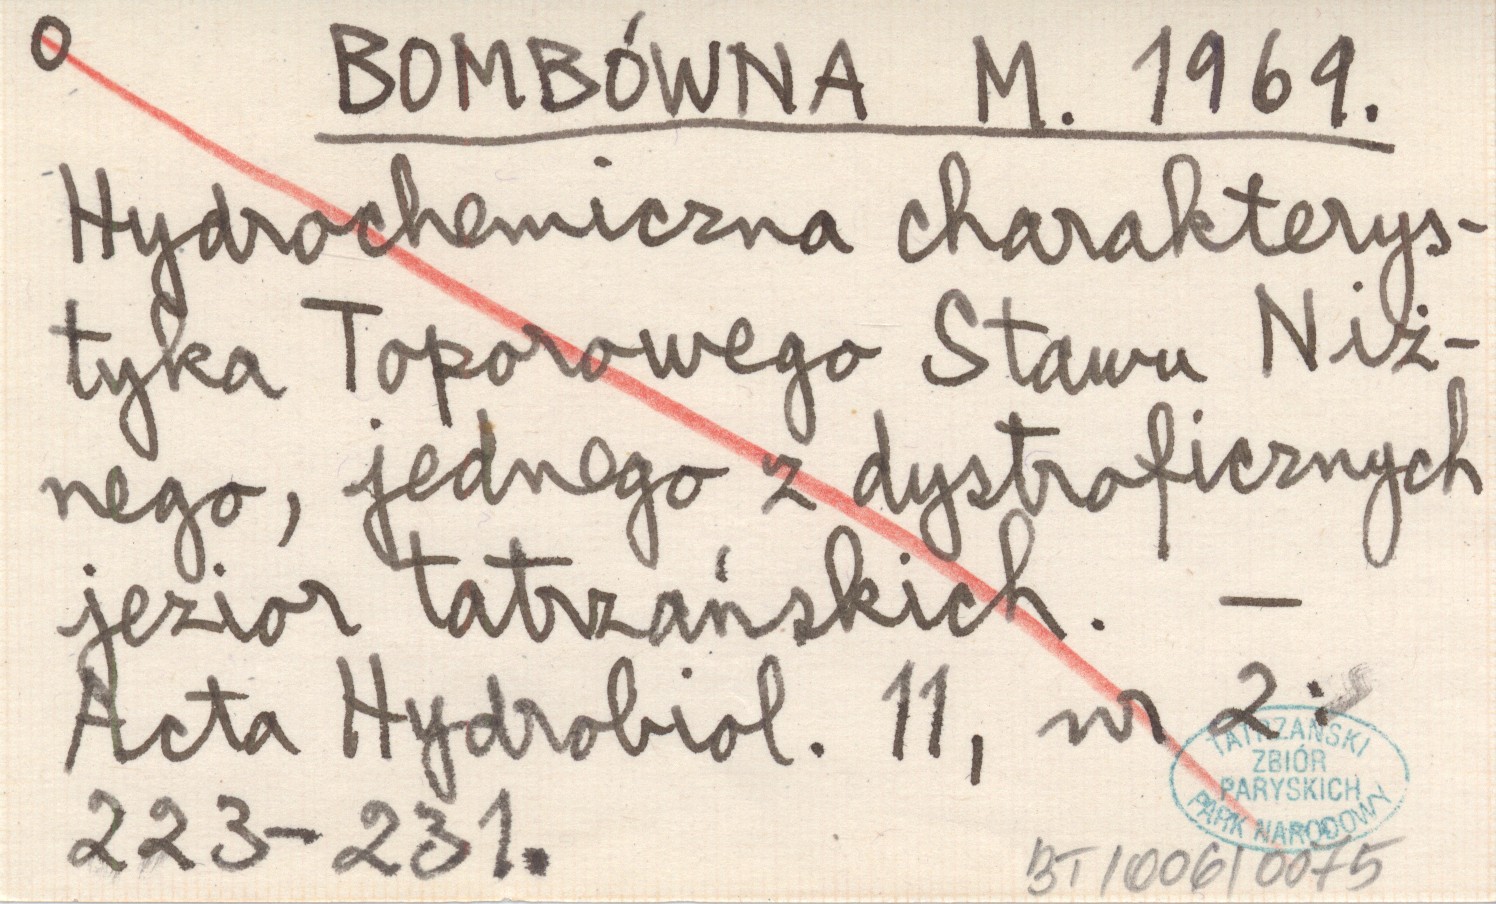 O
BOMBÓWNA M. 1969.
Hydrochemiczna charakterys-
tyka Toporowego Stawu Niż-
nego, jednego z dystroficznych
jezior tatrzańskich. —
Acta Hydrobiol. 11, nr 2:
223-231.
TATRZAŃSKI
ZBIÓR
PARYSKICH
PARK NARODOWY
BT/006/0075